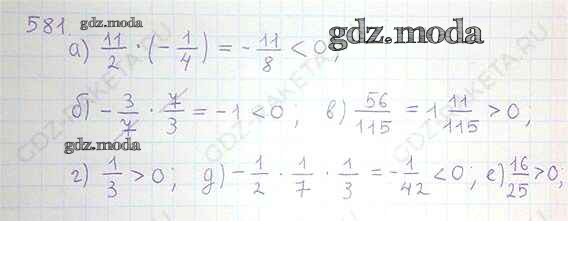 581. gdz.moda
а) 11/2 · (− 1/4) = − 11/8 < 0; gdz.moda
б) − 3/7 · 7/3 = −1 < 0; в) 56/115 = 1 11/115 > 0;
gdz.moda
г) 1/3 > 0; д) − 1/2 · 1/7 · 1/3 = − 1/42 < 0; е) 16/25 > 0;